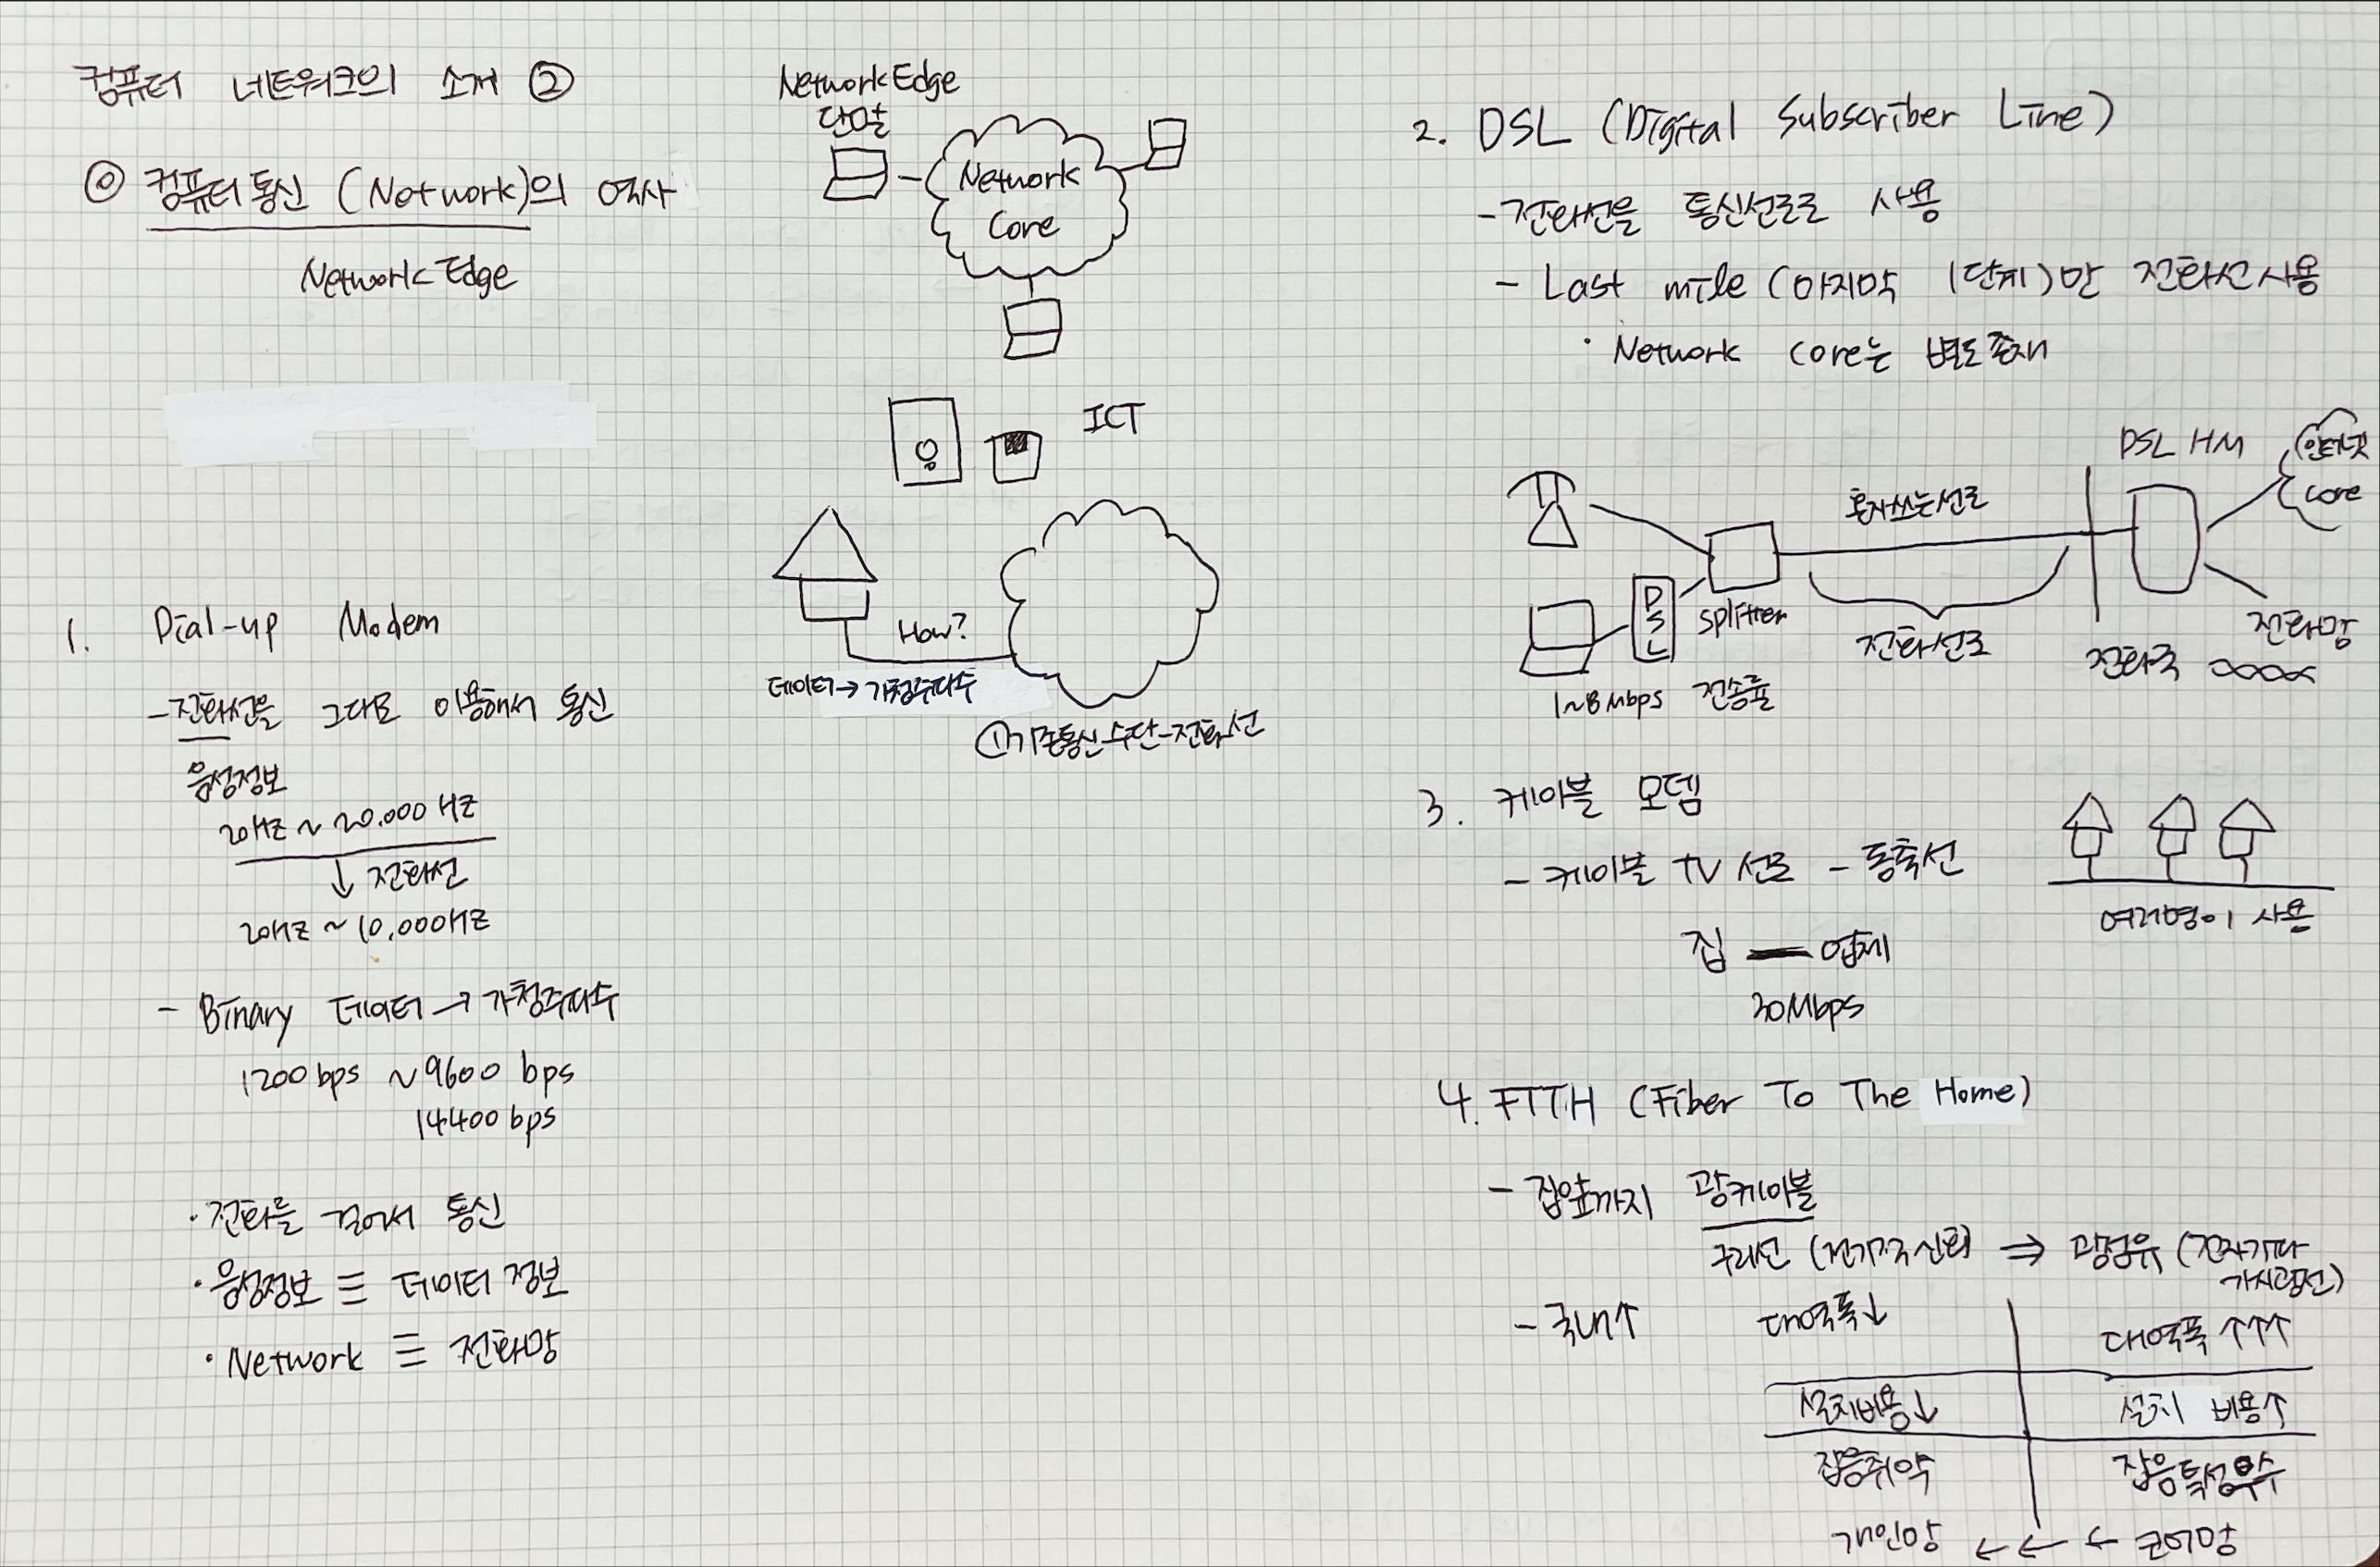 컴퓨터 네트워크의 소개 ②
⓪ 컴퓨터통신 (Network)의 역사
Network Edge
Network Edge
단말
Network
Core
ICT
How?
데이터→가청주파수
①기존통신수단-전화선
1. Dial-up Modem
-전화선을 그대로 이용해서 통신
음성정보
20Hz ~ 20.000 HZ
↓ 전화선
20Hz ~ 10,000HZ
- Binary 데이터→가청주파수
1200 bps ~9600 bps
14400 bps
·전화를 걸어서 통신
·음성정보 ≡ 데이터 정보
·Network ≡ 전화망
2. DSL (Digital Subscriber Line)
-전화선을 통신선로로 사용
- Last mile (마지막 1단계)만 전화선 사용
· Network core는 별도 존재
DSL HM
인터넷
core
혼자쓰는선로
DSL
splitter
전화선로
전화국
전화망
1~8Mbps 전송률
3. 케이블 모뎀
- 케이블 TV 선로 - 동축선
집 — 업체
30Mbps
여러명이 사용
4. FTTH (Fiber To The Home)
- 집앞까지 광케이블
구리선 (전기적신호) ⇒ 광섬유 (전자기파
가시광선)
- 국내↑
대역폭↓ 대역폭 ↑↑↑
설치비용↓ 설치 비용↑
잡음취약 잡음특성우수
개인망 ← ← ← 코어망